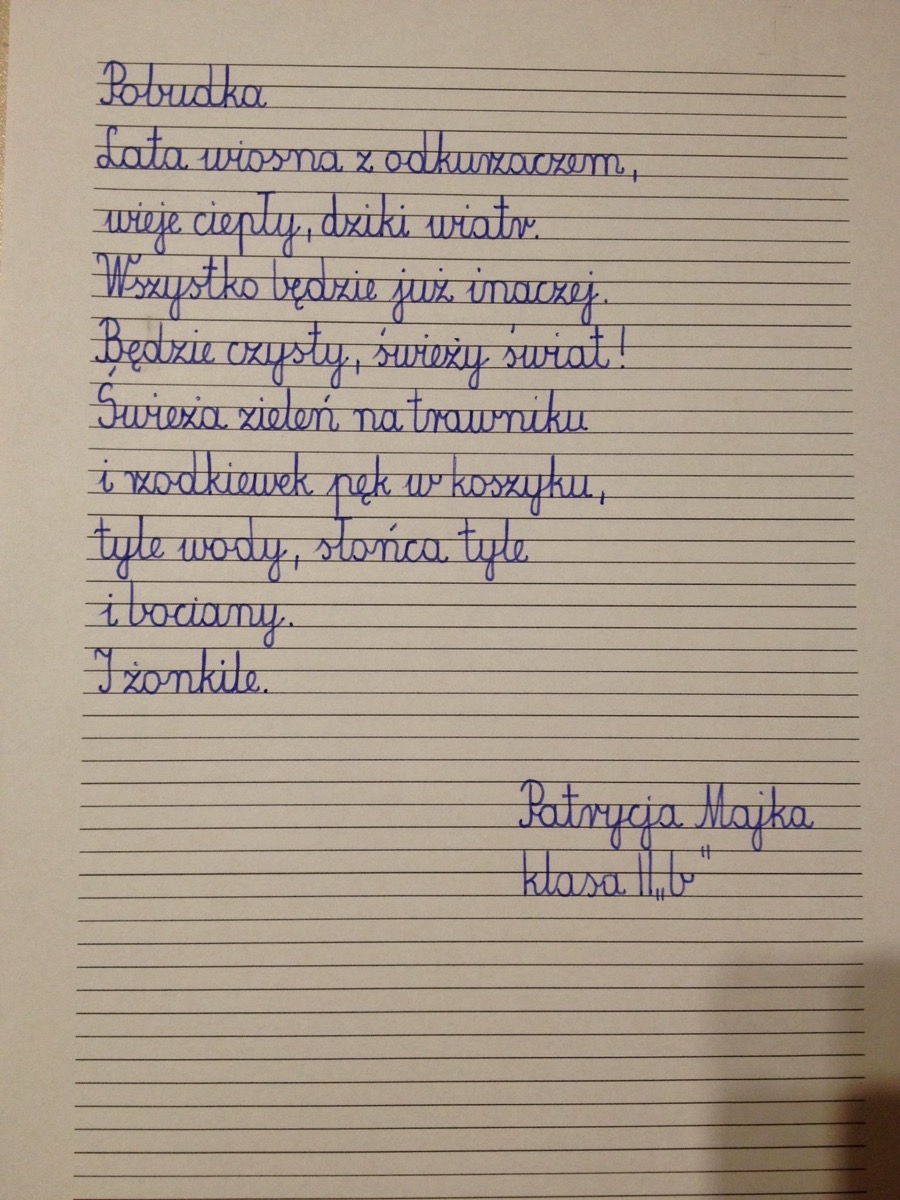 Pobudka
Lata wiosna z odkurzaczem,
wieje ciepły, dziki wiatr.
Wszystko będzie już inaczej.
Będzie czysty, świeży świat!
Świeża zieleń na trawniku
i rzodkiewek pęk w koszyku,
tyle wody, słońca tyle
i bociany.
I żonkile.
Patrycja Majka
klasa II „b"